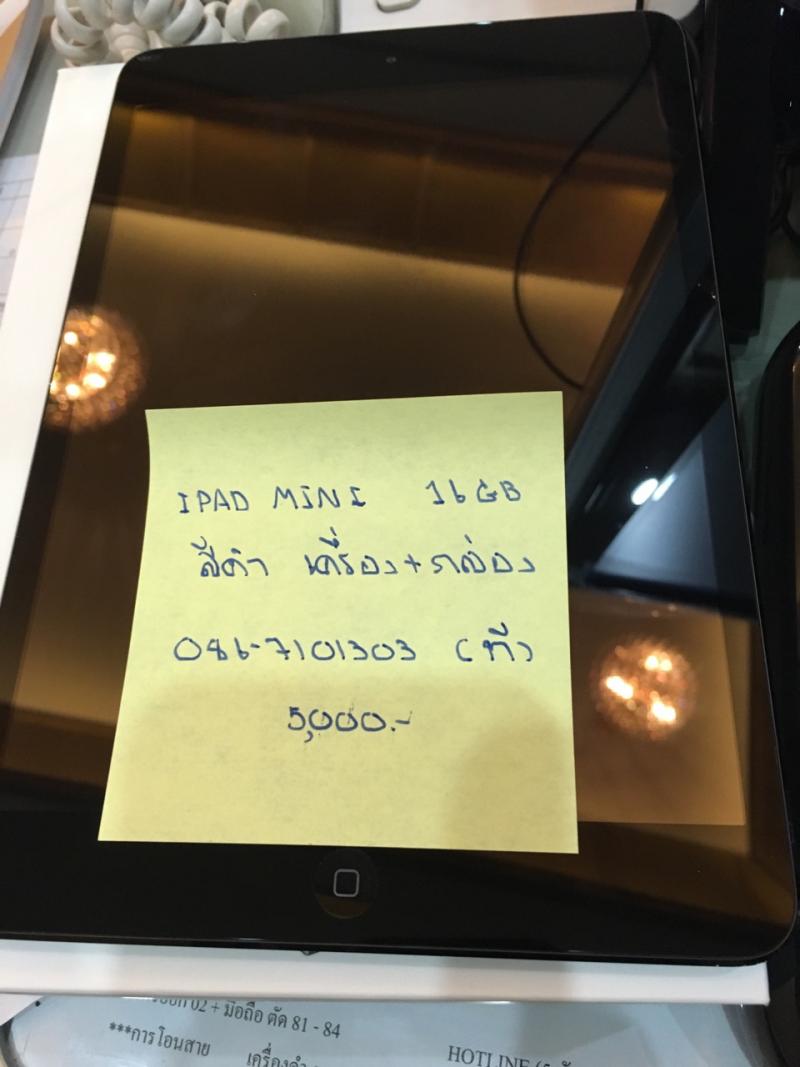 IPAD MINI 16GB
สีดำ เครื่อง+กล่อง
086-7101303 (ที)
5,000.-
02 + มือถือ ตัด 81 - 84
***การโอนสาย
HOTLINE